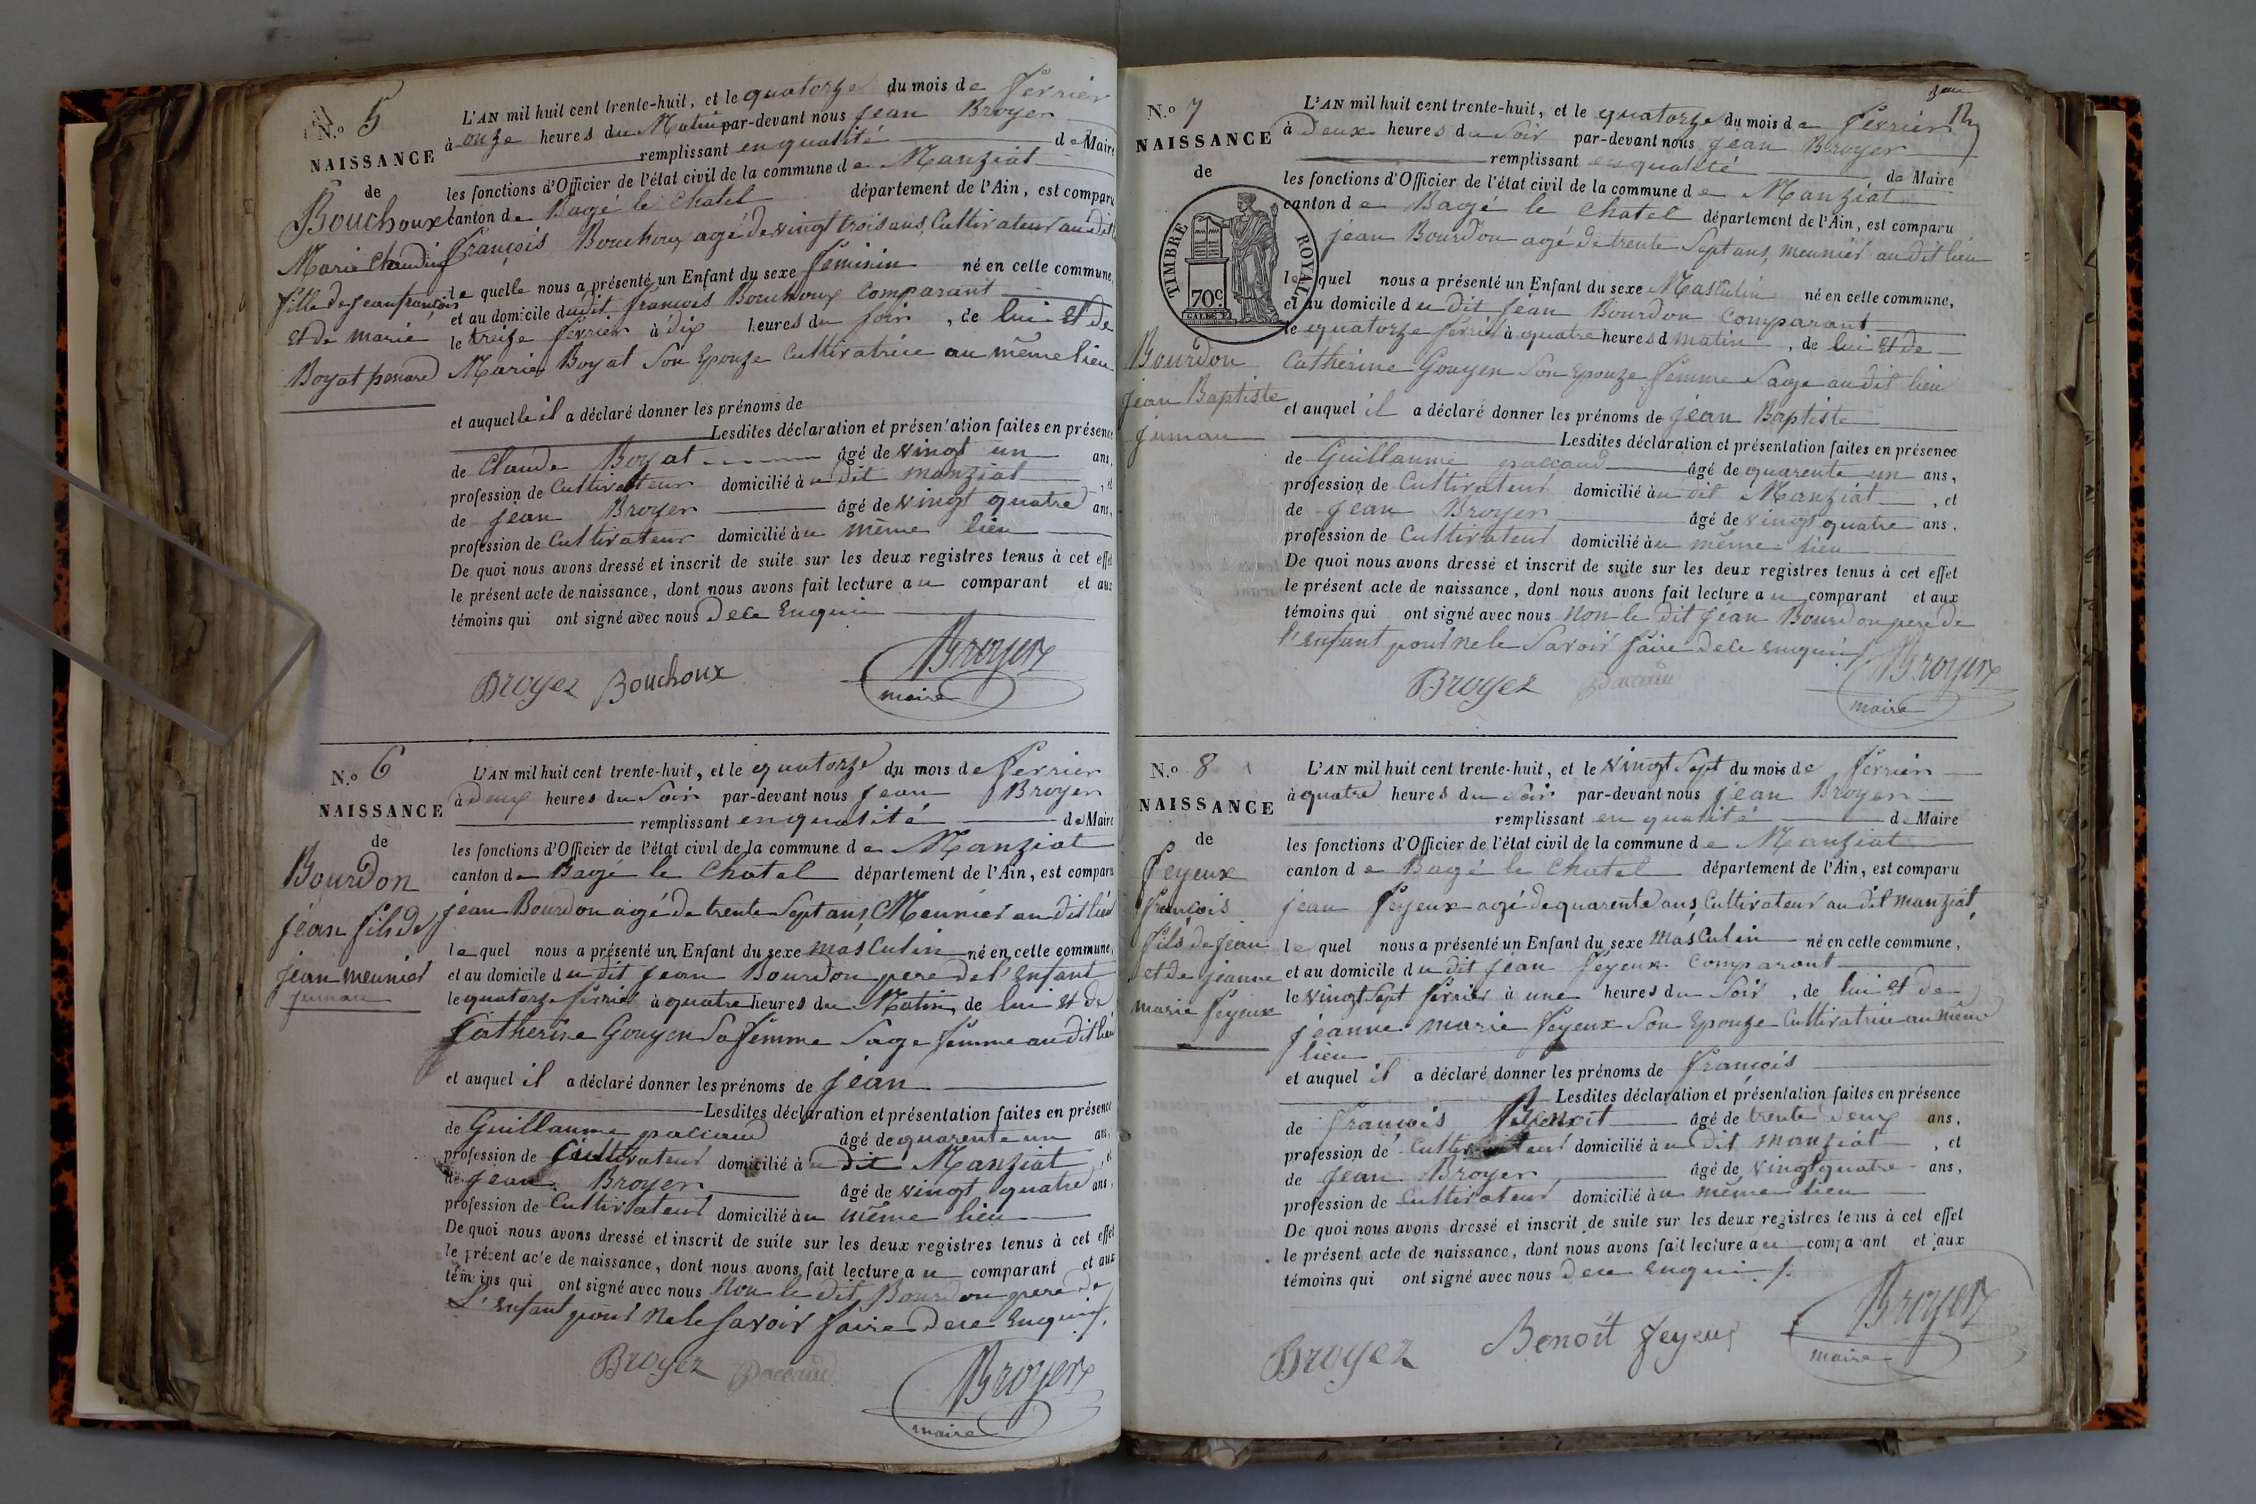 N.o 5
NAISSANCE
de
Bouchoux
Marie Claudine
fille de jean françois
et de marie
Boyat penard
L'AN mil huit cent trente-huit, et le quatorze du mois de fevrier
à onze heures du Matin par-devant nous jean Broyer
remplissant en qualité de Maire
les fonctions d'Officier de l'état civil de la commune de Manziat
canton de Bagé le Chatel département de l'Ain, est comparu
françois Bouchoux agé de vingt trois ans, Cultivateur au dit
le quelle nous a présenté un Enfant du sexe feminin né en cette commune,
et au domicile du dit francois Bouchoux comparant
le treize fevrier à dix heures du soir, de lui et de
Marie Boyat Son Epouze Cultivatrice au même lieu
et auquelle il a déclaré donner les prénoms de
Lesdites déclaration et présentation faites en présence
de Claude Boyat âgé de vingt un ans,
profession de Cultivateur domicilié au dit manziat, et
de jean Broyer âgé de vingt quatre ans,
profession de Cultivateur domicilié au même lieu
De quoi nous avons dressé et inscrit de suite sur les deux registres tenus à cet effet
le présent acte de naissance, dont nous avons fait lecture au comparant et aux
témoins qui ont signé avec nous de ce Enquin
Broyez Bouchoux Broyer
maire
N.o 6
NAISSANCE
de
Bourdon
jéan fils de
jéan meunier
jumau
L'AN mil huit cent trente-huit, et le quatorze du mois de fevrier
à deux heures du Soir par-devant nous jean Broyer
remplissant en qualité de Maire
les fonctions d'Officier de l'état civil de la commune de Manziat
canton de Bagé le Chatel département de l'Ain, est comparu
jéan Bourdon agé de trente Sept ans, Meunier au dit lieu
le quel nous a présenté un Enfant du sexe masculin né en cette commune,
et au domicile du dit jean Bourdon pere de l'Enfant
le quatorze fevrier à quatre heures du Matin, de lui et de
Catherine Gouyen Sa femme Sage femme au dit lieu
et auquel il a déclaré donner les prénoms de jéan
Lesdites déclaration et présentation faites en présence
de Guillaume paccaud âgé de quarente un ans,
profession de Cultivateur domicilié au dit Manziat, et
de jean Broyer âgé de vingt quatre ans,
profession de Cultivateur domicilié au même lieu
De quoi nous avons dressé et inscrit de suite sur les deux registres tenus à cet effet
le présent acte de naissance, dont nous avons fait lecture au comparant et aux
témoins qui ont signé avec nous Non le dit Bourdon pere de
L'enfant pour ne le savoir faire de ce Enquis.
Broyez Paccaud Broyer
maire
N.o 7
NAISSANCE
de
TIMBRE ROYAL
70c.
Bourdon
jéan Baptiste
jumau
L'AN mil huit cent trente-huit, et le quatorze du mois de fevrier
à Deux heures du Soir par-devant nous jéan Broyer
remplissant en qualité de Maire
les fonctions d'Officier de l'état civil de la commune de Manziat
canton de Bagé le Chatel département de l'Ain, est comparu
jéan Bourdon agé de trente Sept ans, meunier au dit lieu
le quel nous a présenté un Enfant du sexe Masculin né en cette commune,
et au domicile du dit jéan Bourdon comparant
le quatorze fevrier à quatre heures d matin, de lui et de
Catherine Gouyen Son Epouze femme Sage au dit lieu
et auquel il a déclaré donner les prénoms de jéan Baptiste
Lesdites déclaration et présentation faites en présence
de Guillaume paccaud âgé de quarente un ans,
profession de Cultivateur domicilié au dit Manziat, et
de jéan Broyer âgé de vingt quatre ans,
profession de Cultivateur domicilié au même lieu
De quoi nous avons dressé et inscrit de suite sur les deux registres tenus à cet effet
le présent acte de naissance, dont nous avons fait lecture au comparant et aux
témoins qui ont signé avec nous Non le dit jéan Bourdon pere de
l'enfant pour ne le Savoir faire de ce enquis
Broyez Paccaud Broyer
maire
N.o 8
NAISSANCE
de
feyeux
françois
fils de jean
et de jeanne
marie feyeux
L'AN mil huit cent trente-huit, et le vingt Sept du mois de fevrier
à quatre heures du Soir par-devant nous jéan Broyer
remplissant en qualité de Maire
les fonctions d'Officier de l'état civil de la commune de Manziat
canton de Bagé le Chatel département de l'Ain, est comparu
jéan feyeux agé de quarente ans, Cultivateur au dit manziat,
le quel nous a présenté un Enfant du sexe masculin né en cette commune,
et au domicile du dit jéan feyeux comparant
le vingt Sept fevrier à une heures du Soir, de lui et de
jeanne marie feyeux Son Epouze Cultivatrice au même
lieu
et auquel il a déclaré donner les prénoms de françois
Lesdites déclaration et présentation faites en présence
de françois Benoit âgé de trente deux ans,
profession de Cultivateur domicilié au dit manziat, et
de jean Broyer âgé de vingt quatre ans,
profession de Cultivateur domicilié au même lieu
De quoi nous avons dressé et inscrit de suite sur les deux registres tenus à cet effet
le présent acte de naissance, dont nous avons fait lecture au comparant et aux
témoins qui ont signé avec nous de ce enquis.
Broyez Benoît feyeux Broyer
maire